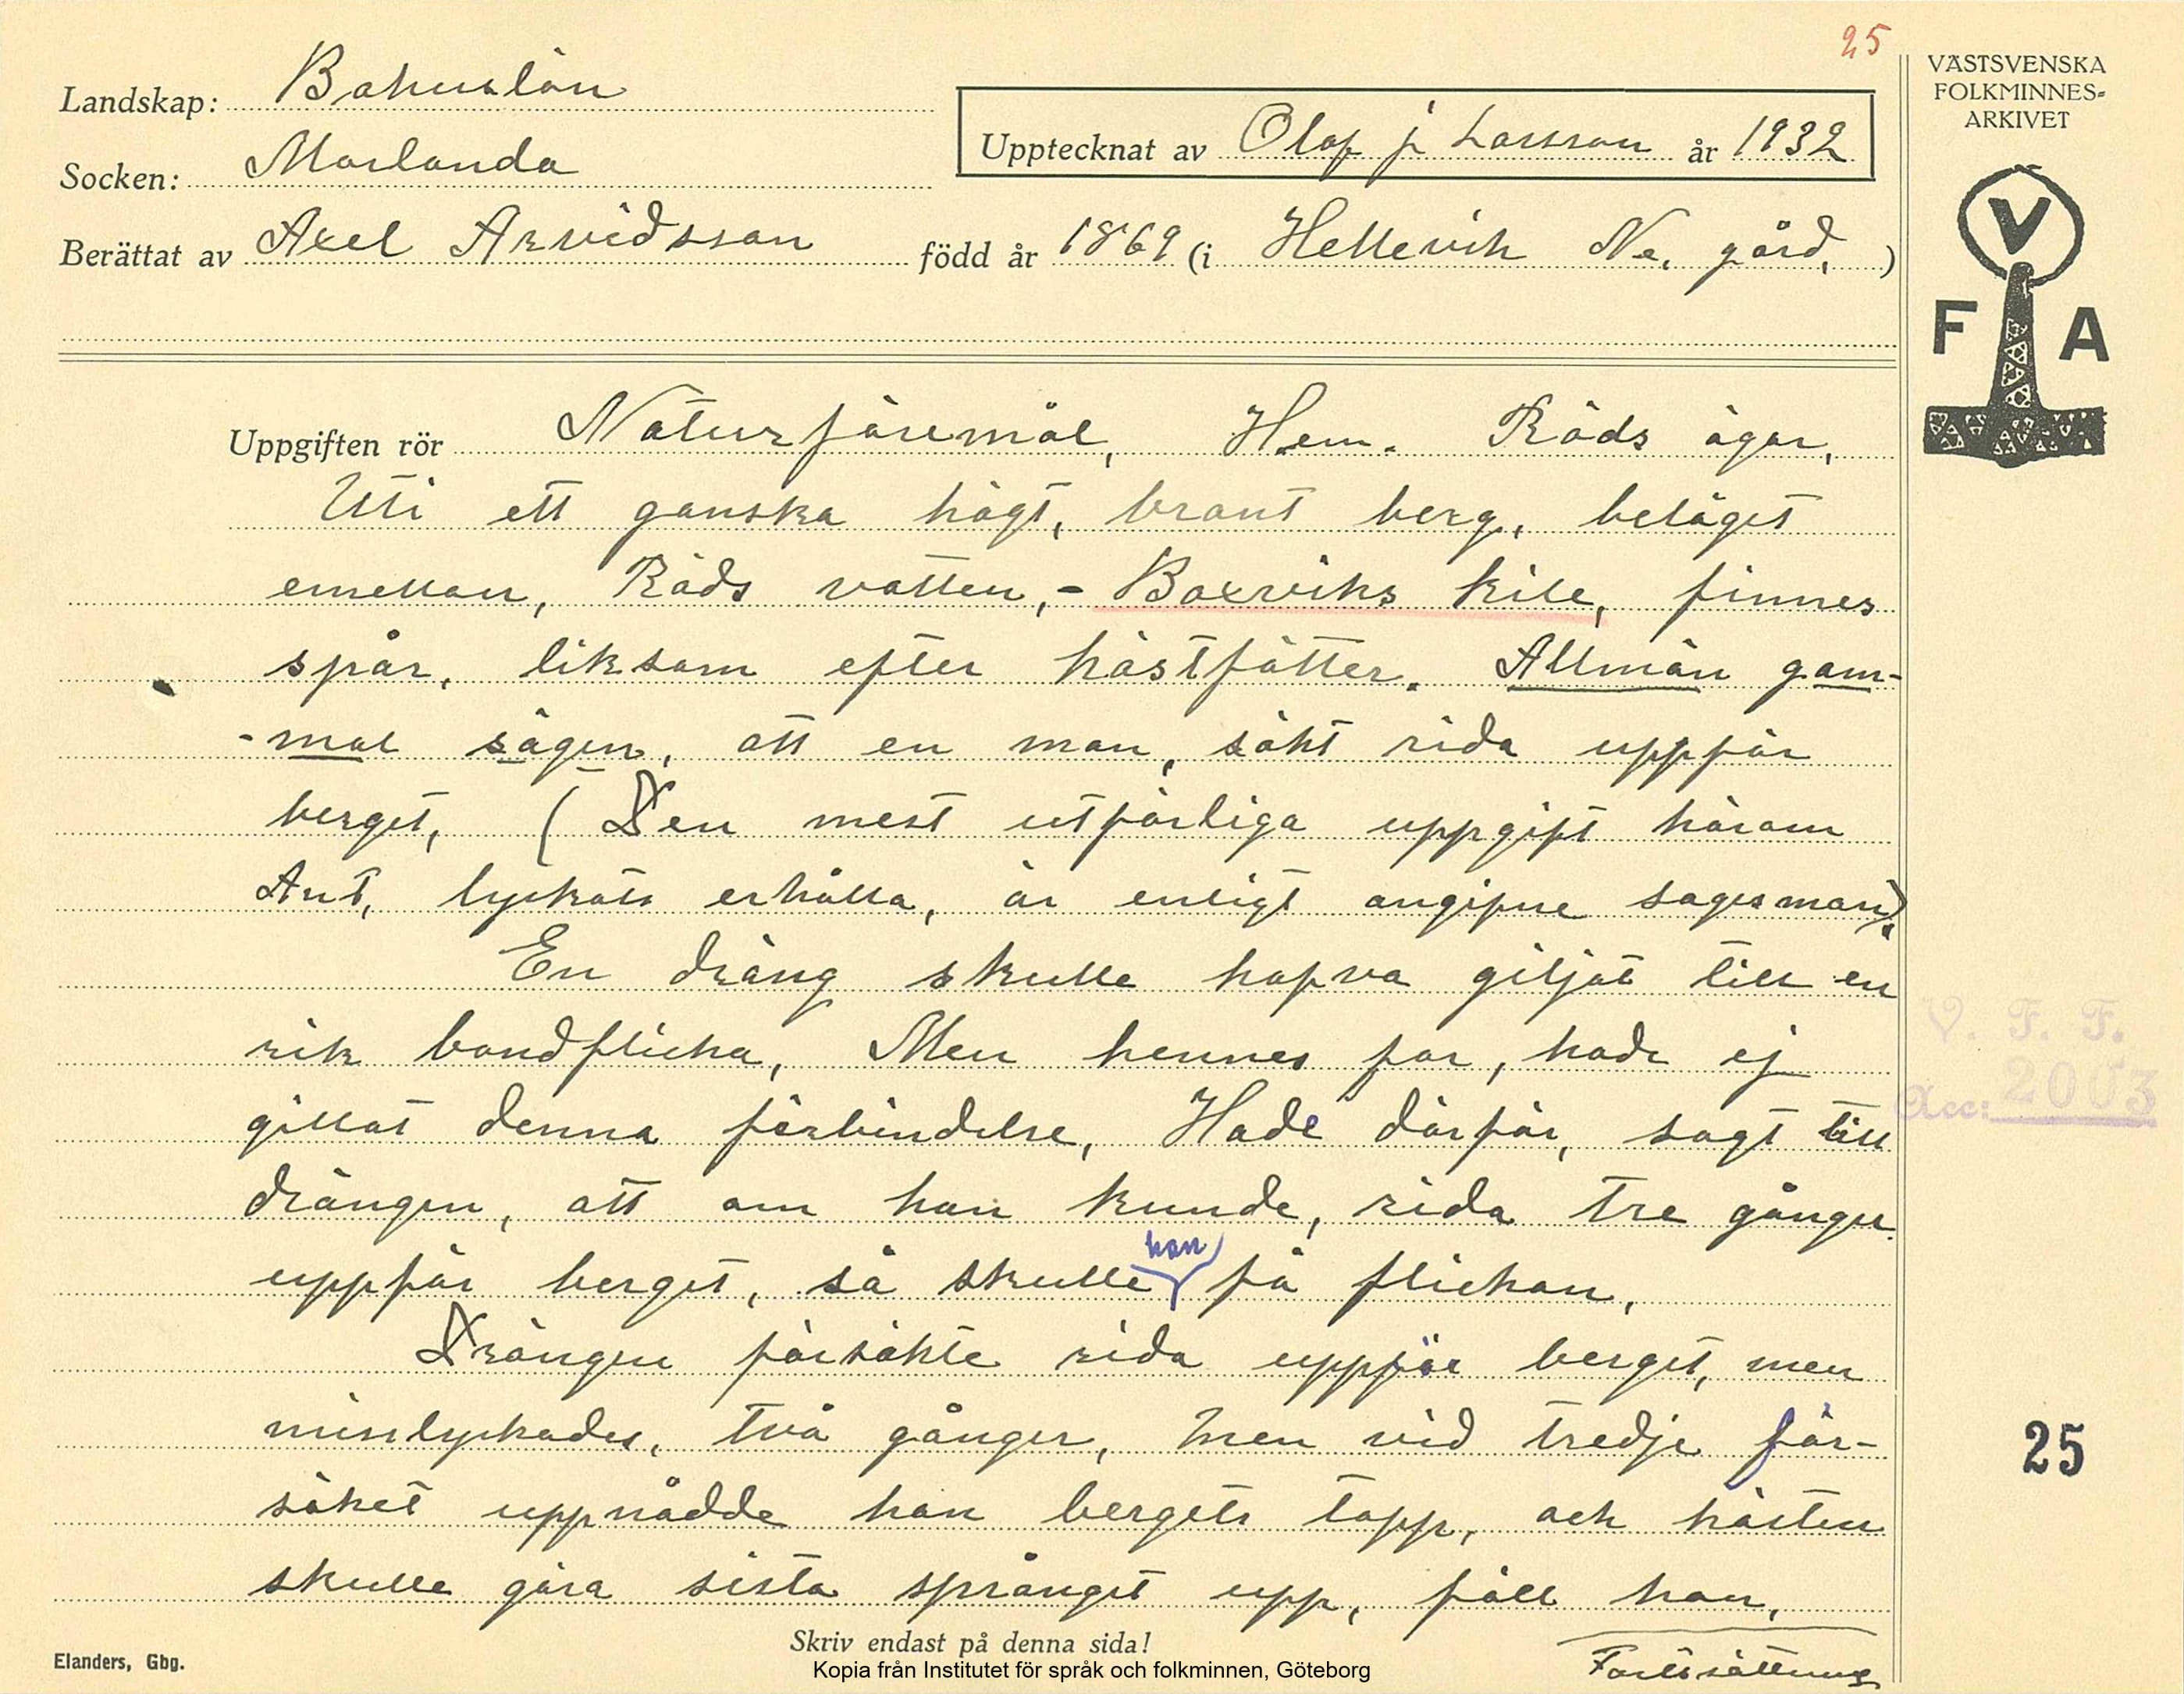 25
Landskap: Bohuslän
Socken: Morlanda
Berättat av Axel Arvidsson född år 1869 (i Hellevik Ne. gård.)
Upptecknat av Olof j Larsson år 1932
VÄSTSVENSKA
FOLKMINNES=
ARKIVET
V
F A
Uppgiften rör Naturföremål, Hem. Röds ägor,
Uti ett ganska högt, brant berg, beläget
emellan, Röds vatten,- Boxviks kile, finnes
spår, liksom efter hästfötter. Allmän gam-
-mal sägen, att en man, sökt rida uppför
berget, (Den mest utförliga uppgift härom
Ant, lyckats erhålla, är enligt angifne sagesman).
En dräng skulle hafva giljat till en
rik bondflicka, Men hennes far, hade ej
gillat denna förbindelse, Hade därför, sagt till
drängen, att om han kunde, rida tre gånger
uppför berget, så skulle han få flickan,
Drängen försökte rida uppför berget, men
misslyckades, två gånger, men vid tredje för-
söket uppnådde han bergets topp, och hästen
skulle göra sista språnget upp, föll han,
Fortsättning
V. F. F.
Acc: 2003
25
Skriv endast på denna sida!
Elanders, Gbg.
Kopia från Institutet för språk och folkminnen, Göteborg